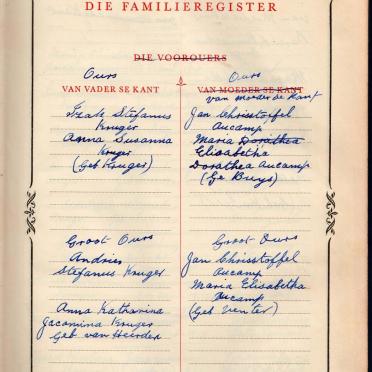 DIE FAMILIEREGISTER
DIE VOOROUERS
Ours
VAN VADER SE KANT
Izak Stefanus
Kruger
Anna Susanna
Kruger
(Geb Kruger)
Groot Ours
Andries
Stefanus Kruger
Anna Katharina
Jacomina Kruger
Geb van Heerden
Ours
VAN MOEDER SE KANT
van moeder se kant
Jan Christoffel
Aucamp
Maria Dorathea
Elisabetha
Dorathea Aucamp
(Ge Buys)
Groot Ours
Jan Christoffel
Aucamp
Maria Elisabetha
Aucamp
(Geb Venter)